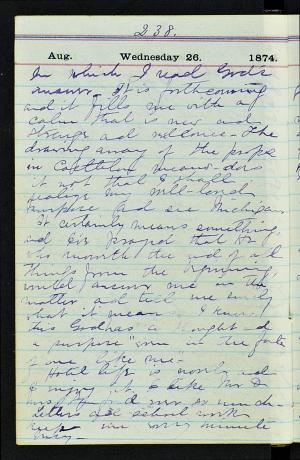 238.
Aug. Wednesday 26. 1874.
In which I read God's
answer. It is forthcoming
and it fills me with a
calm that is new and
strange and welcome. The
drawing away of the props
in means does
it not that I shall
realize my well-loved
purpose and see Michigan
It certainly means something
and I've prayed that He
who knoweth the end of all
things from the beginning
would answer me in this
matter and tell me surely
what it means. I know
this God has a thought and
a purpose even in the fate
of one like me.
Hotel life is novel and
I enjoy it. I like Mr. &
Mrs. so much.
Letters and school work
keep me every minute
busy.